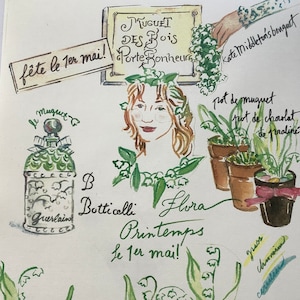 MUGUET
DES BOIS
Porte Bonheur
fête le 1er mai!
Kate Middleton's bouquet
le Muguet
pot de muguet
pot de chocolat
de praliné
Guerlain
B
Botticelli
Flora
Printemps
le 1er mai!